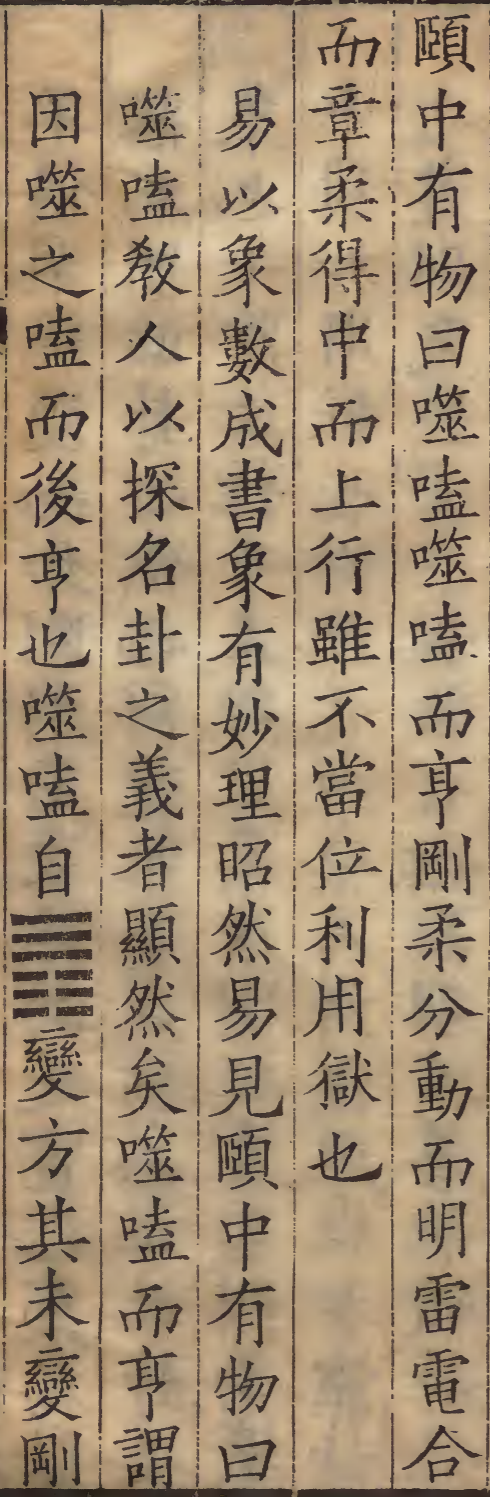 頤中有物曰噬嗑噬嗑而亨剛柔分動而明雷電合
而章柔得中而上行雖不當位利用獄也
易以象數成書象有妙理昭然易見頤中有物曰
噬嗑敎人以探名卦之義者顯然矣噬嗑而亨謂
因噬之嗑而後亨也噬嗑自䷋變方其未變剛